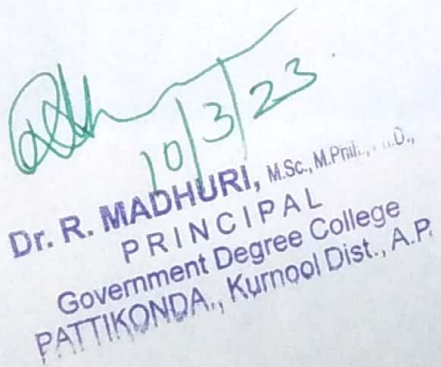 10/3/23
Dr. R. MADHURI, M.Sc., M.Phil.,
PRINCIPAL
Government Degree College
PATTIKONDA., Kurnool Dist., A.P.